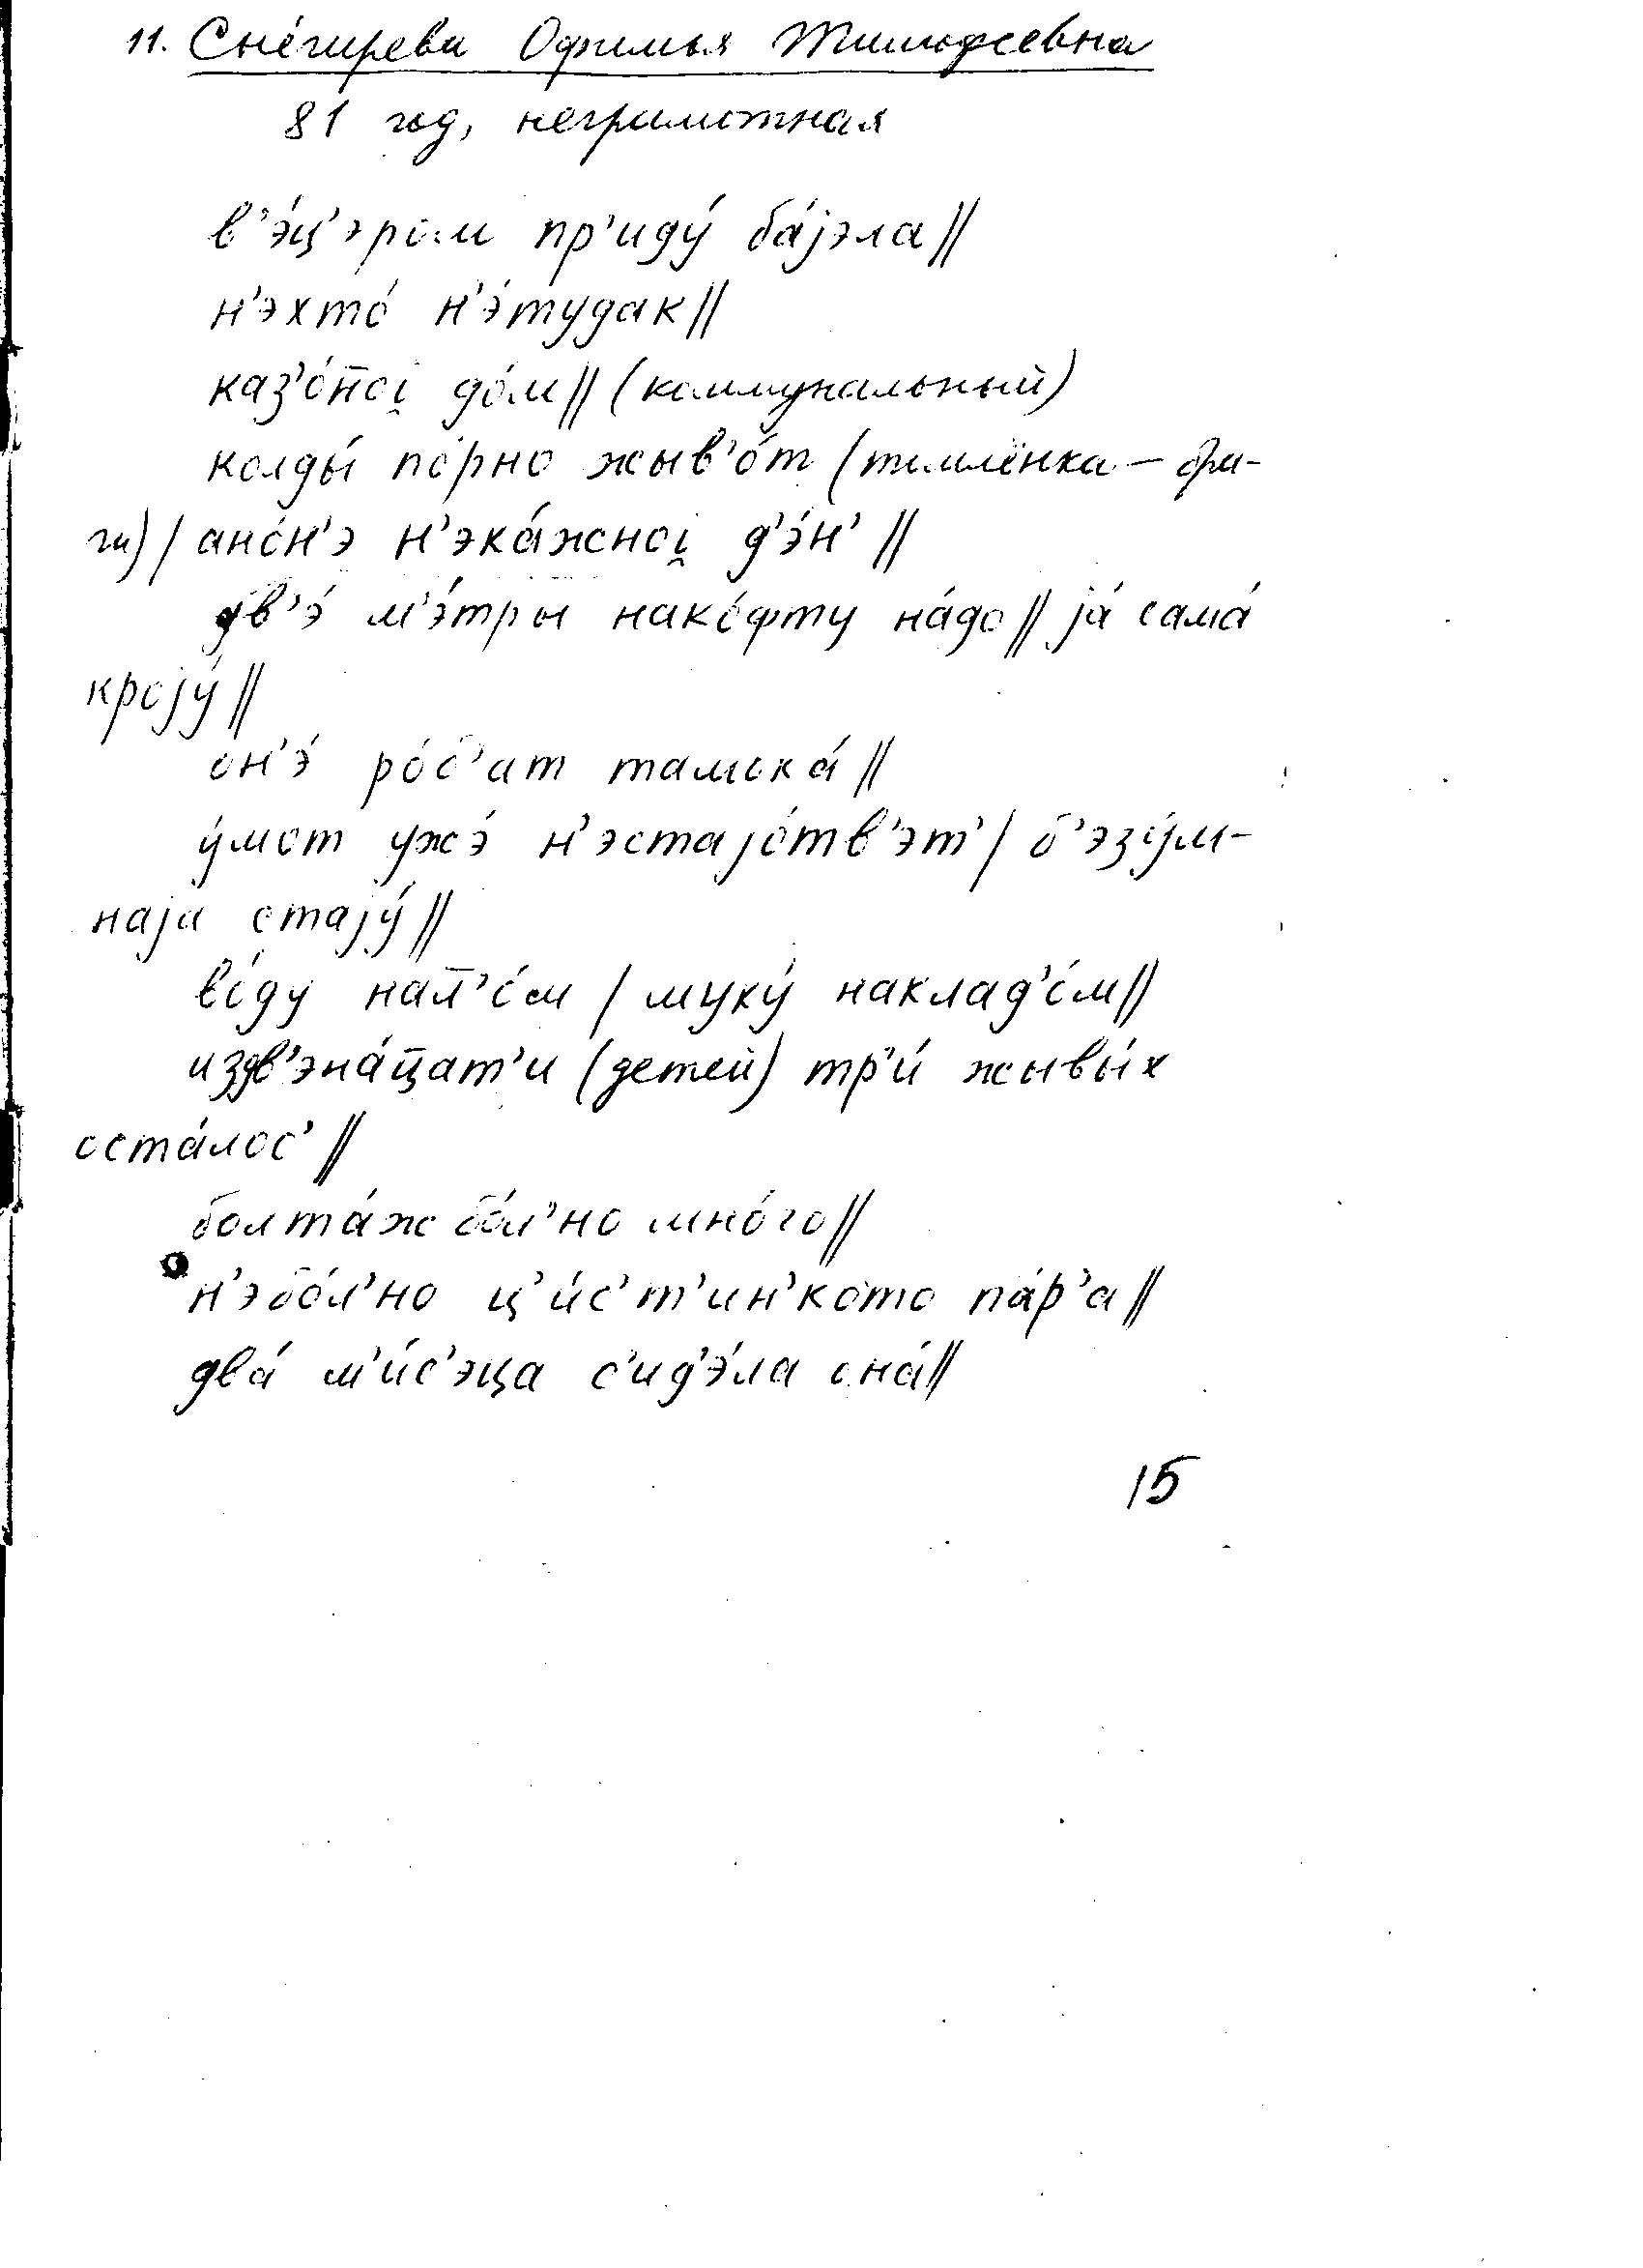 11. Сне́гирева Офимья Тимофеевна
81 год, неграмотная
в’э́ц’эром пр’иду́ ба́jэла//
н’эхто́ н’э́тудак//
каз’о́н̄оi̯ до́м// (коммунальный)
колды́ по́рно жыв’о́т (тимлёнка –
ано́н’э н’эка́жноi̯ д’э́н’//
дв’э́ м’э́тры нако́фту на́до// jа́ сама́
кроjу́//
он’э́ ро́с̄’ат тамока́//
у́мот ужэ́ н’эстаjо́тв’эт’/ б’эзу́м-
наjа стаjу́//
во́ду нал̄’о́м / муку́ наклад’о́м//
издв’эна́ц̄ат’и (детей) тр’и́ жывы́х
оста́лос’//
болта́ж бо́л’но мно́го//
н’эбо́л’но ц’и́с’т’ин’кото па́р’а//
два́ м’и́с’эца с’ид’э́ла она́//
15